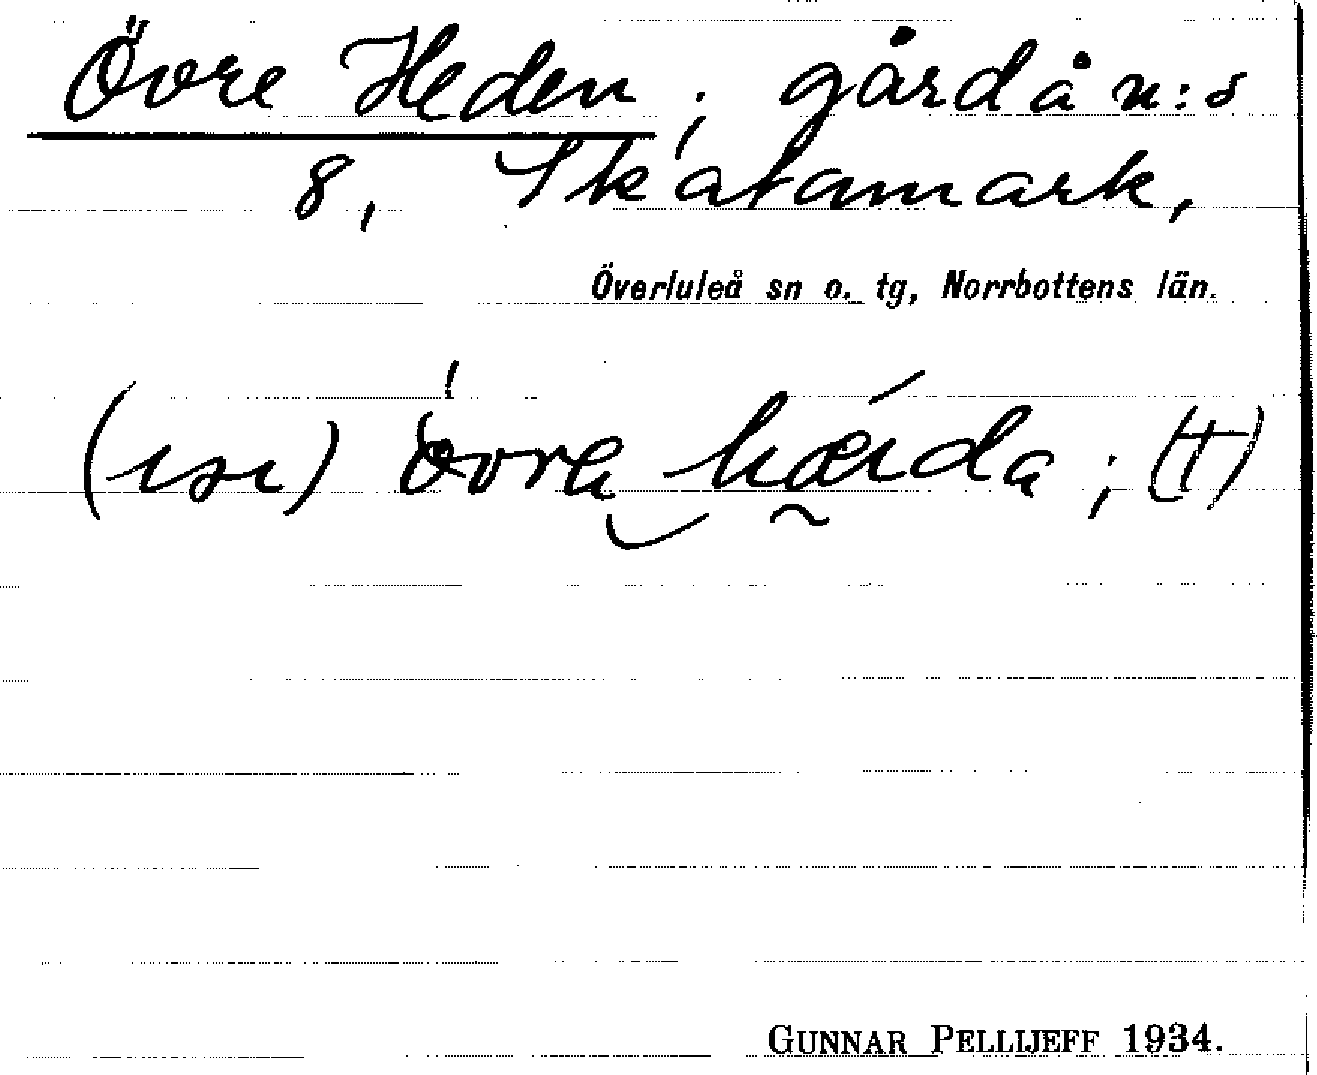 Övre Heden; gård å n:s
8, Skatamark,
Överluleå sn o. tg, Norrbottens län.
övra hæida; (†)
GUNNAR PELLIJEFF 1934.